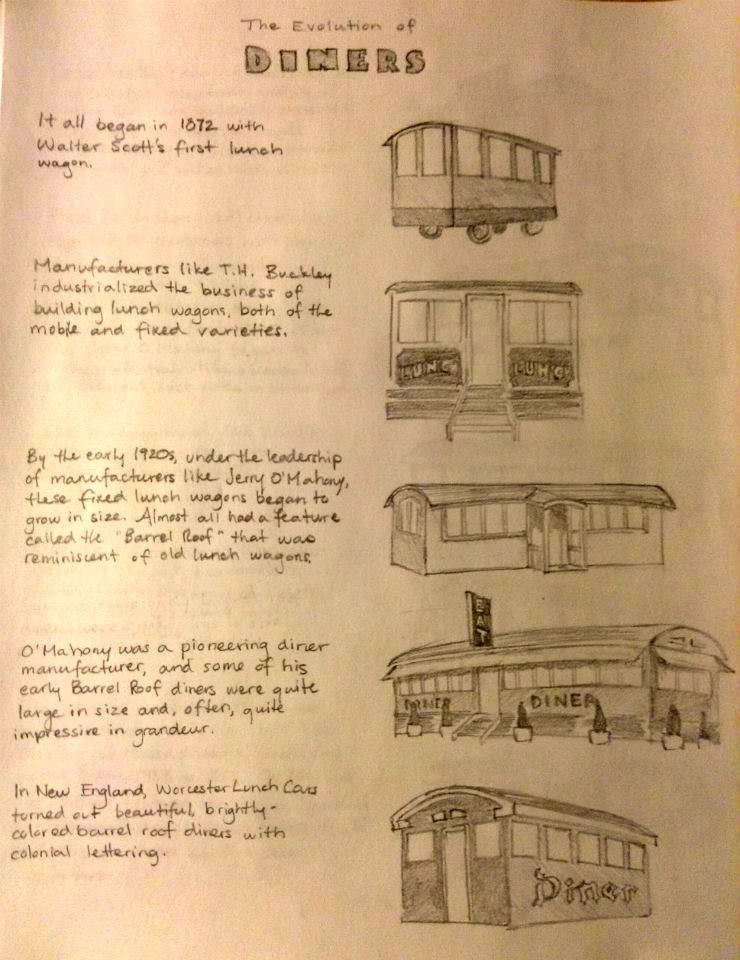 The Evolution of
DINERS
It all began in 1872 with
Walter Scott's first lunch
wagon.
Manufacturers like T.H. Buckley
industrialized the business of
building lunch wagons, both of the
mobile and fixed varieties.
LUNCH LUNCH
By the early 1920s, under the leadership
of manufacturers like Jerry O'Mahony,
these fixed lunch wagons began to
grow in size. Almost all had a feature
called the "Barrel Roof" that was
reminiscent of old lunch wagons.
EAT
O'Mahony was a pioneering diner
manufacturer, and some of his
early Barrel Roof diners were quite
large in size and, often, quite
impressive in grandeur.
DINER DINER
In New England, Worcester Lunch Cars
turned out beautiful, brightly-
colored barrel roof diners with
colonial lettering.
Diner